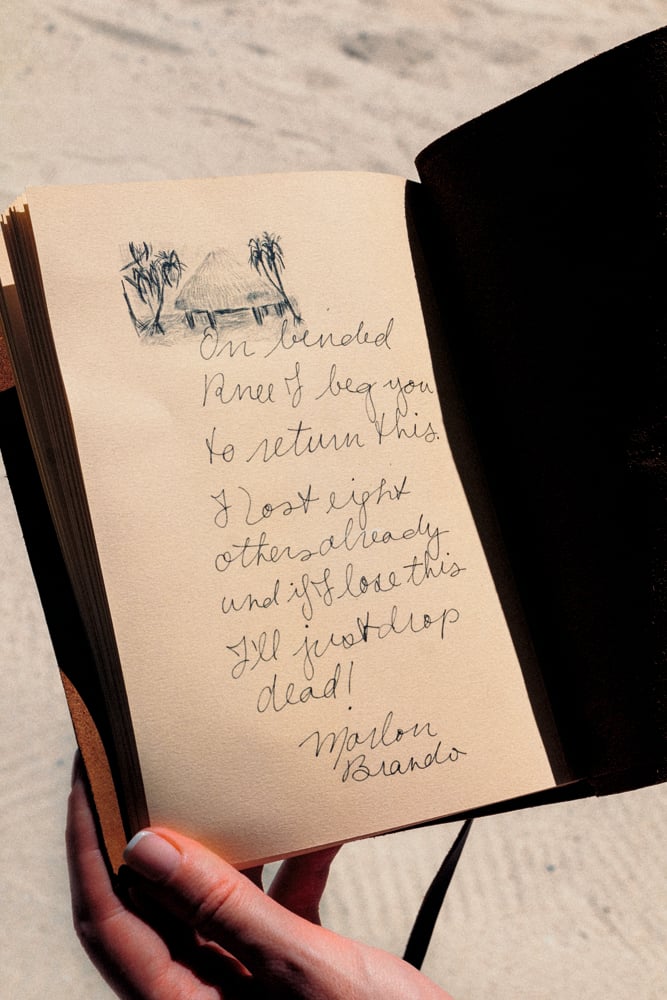 On bended
Knee I beg you
to return this.
I lost eight
others already
and if I lose this
I'll just drop
dead!
Marlon
Brando